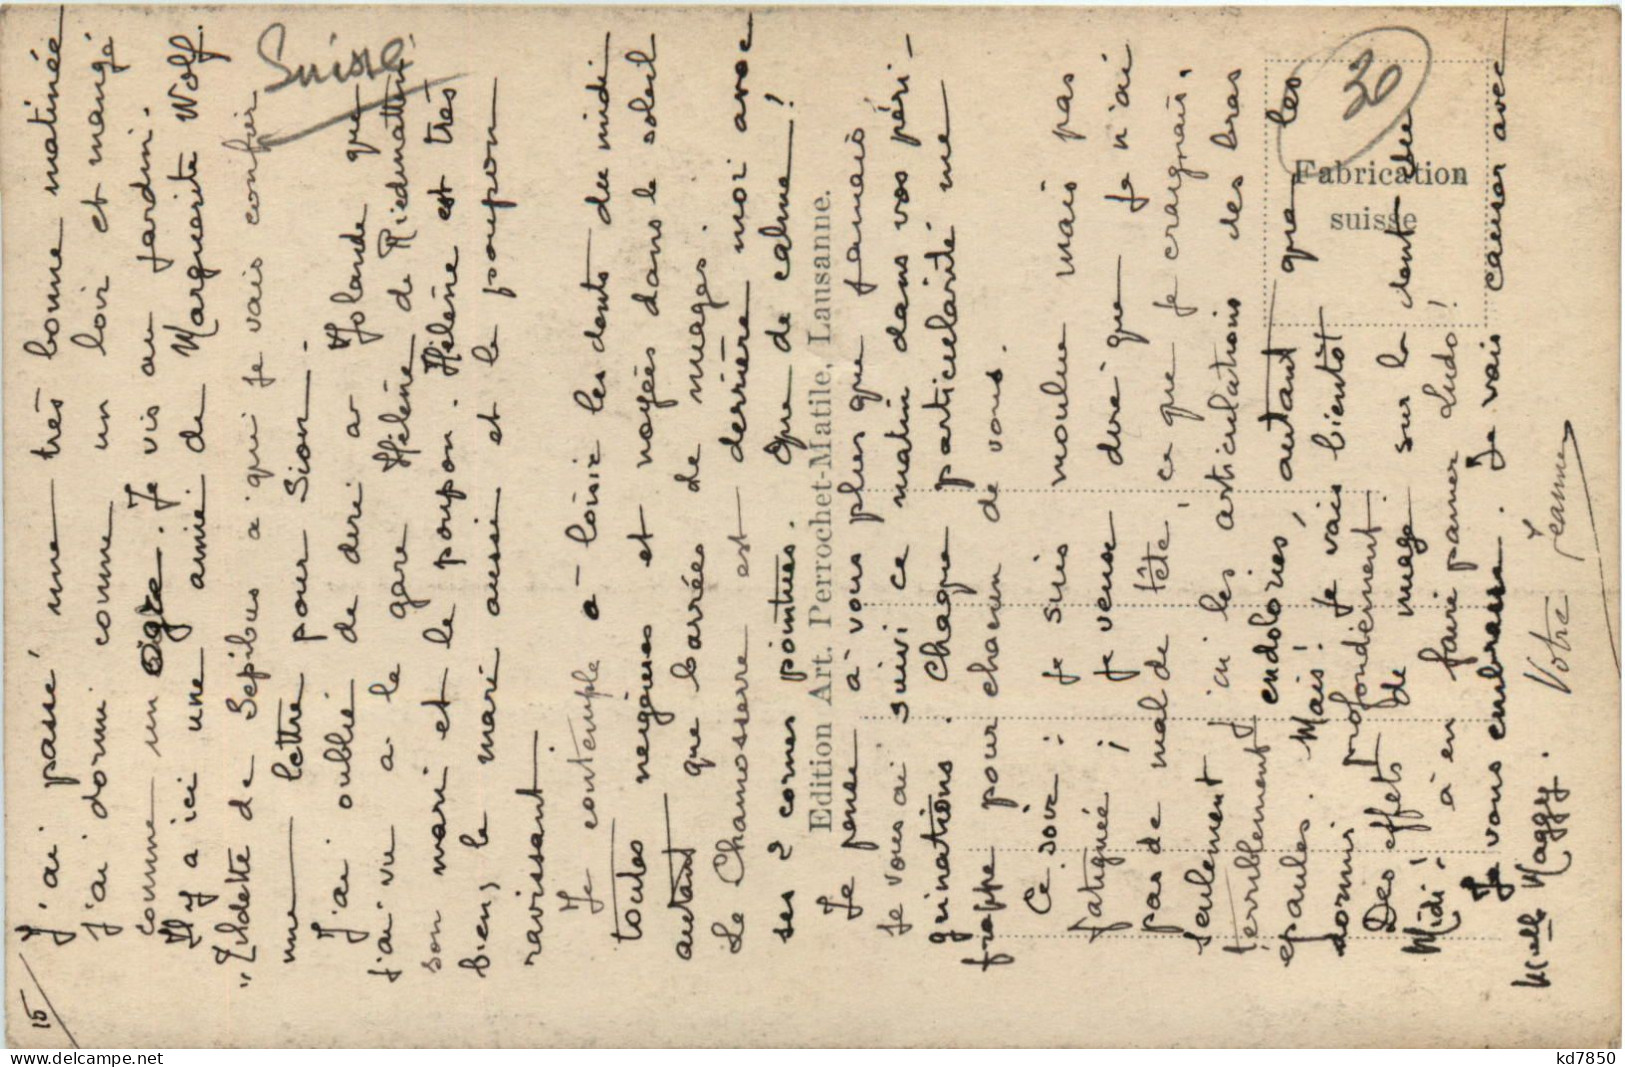 15/
J'ai passé une très bonne matinée
j'ai dormi comme un loir et mangé
comme un ogre. Je vis au jardin.
Il y a ici une amie de Marguerite Wolf.
"Zildette de Sépibus à qui je vais confier
une lettre pour Sion.
J'ai oublié de dire à Yolande que
j'ai vu à la gare Hélène de Riedmatten,
son mari et le poupon. Hélène est très
bien, le mari aussi et le poupon
ravissant.
Je contemple à loisir les dents du midi
toutes neigeuses et noyées dans le soleil
autant que barrées de nuages.
Le Chamosserre est derrière moi avec
ses 2 cornes pointues. Que de calme!
Je pense à vous plus que jamais
Je vous ai suivi ce matin dans vos péri-
grinations. Chaque particularité me
frappe pour chacun de vous.
Ce soir: je suis moulue mais pas
fatiguée; je veux dire que je n'ai
pas de mal de tête, ce que je craignais,
seulement j'ai les articulations des bras
terriblement endolories, autant que les
épaules. Mais! je vais bientôt
dormir profondément.
Des effets de nuage sur la dent du
Midi! à en faire pamer Ludo!
Je vous embrasse. Je vais causer avec
Melle Maggy. Votre Jeanne
Suisse
30
Fabrication
suisse
Edition Art. Perrochet-Matile, Lausanne.
www.delcampe.net
kd7850